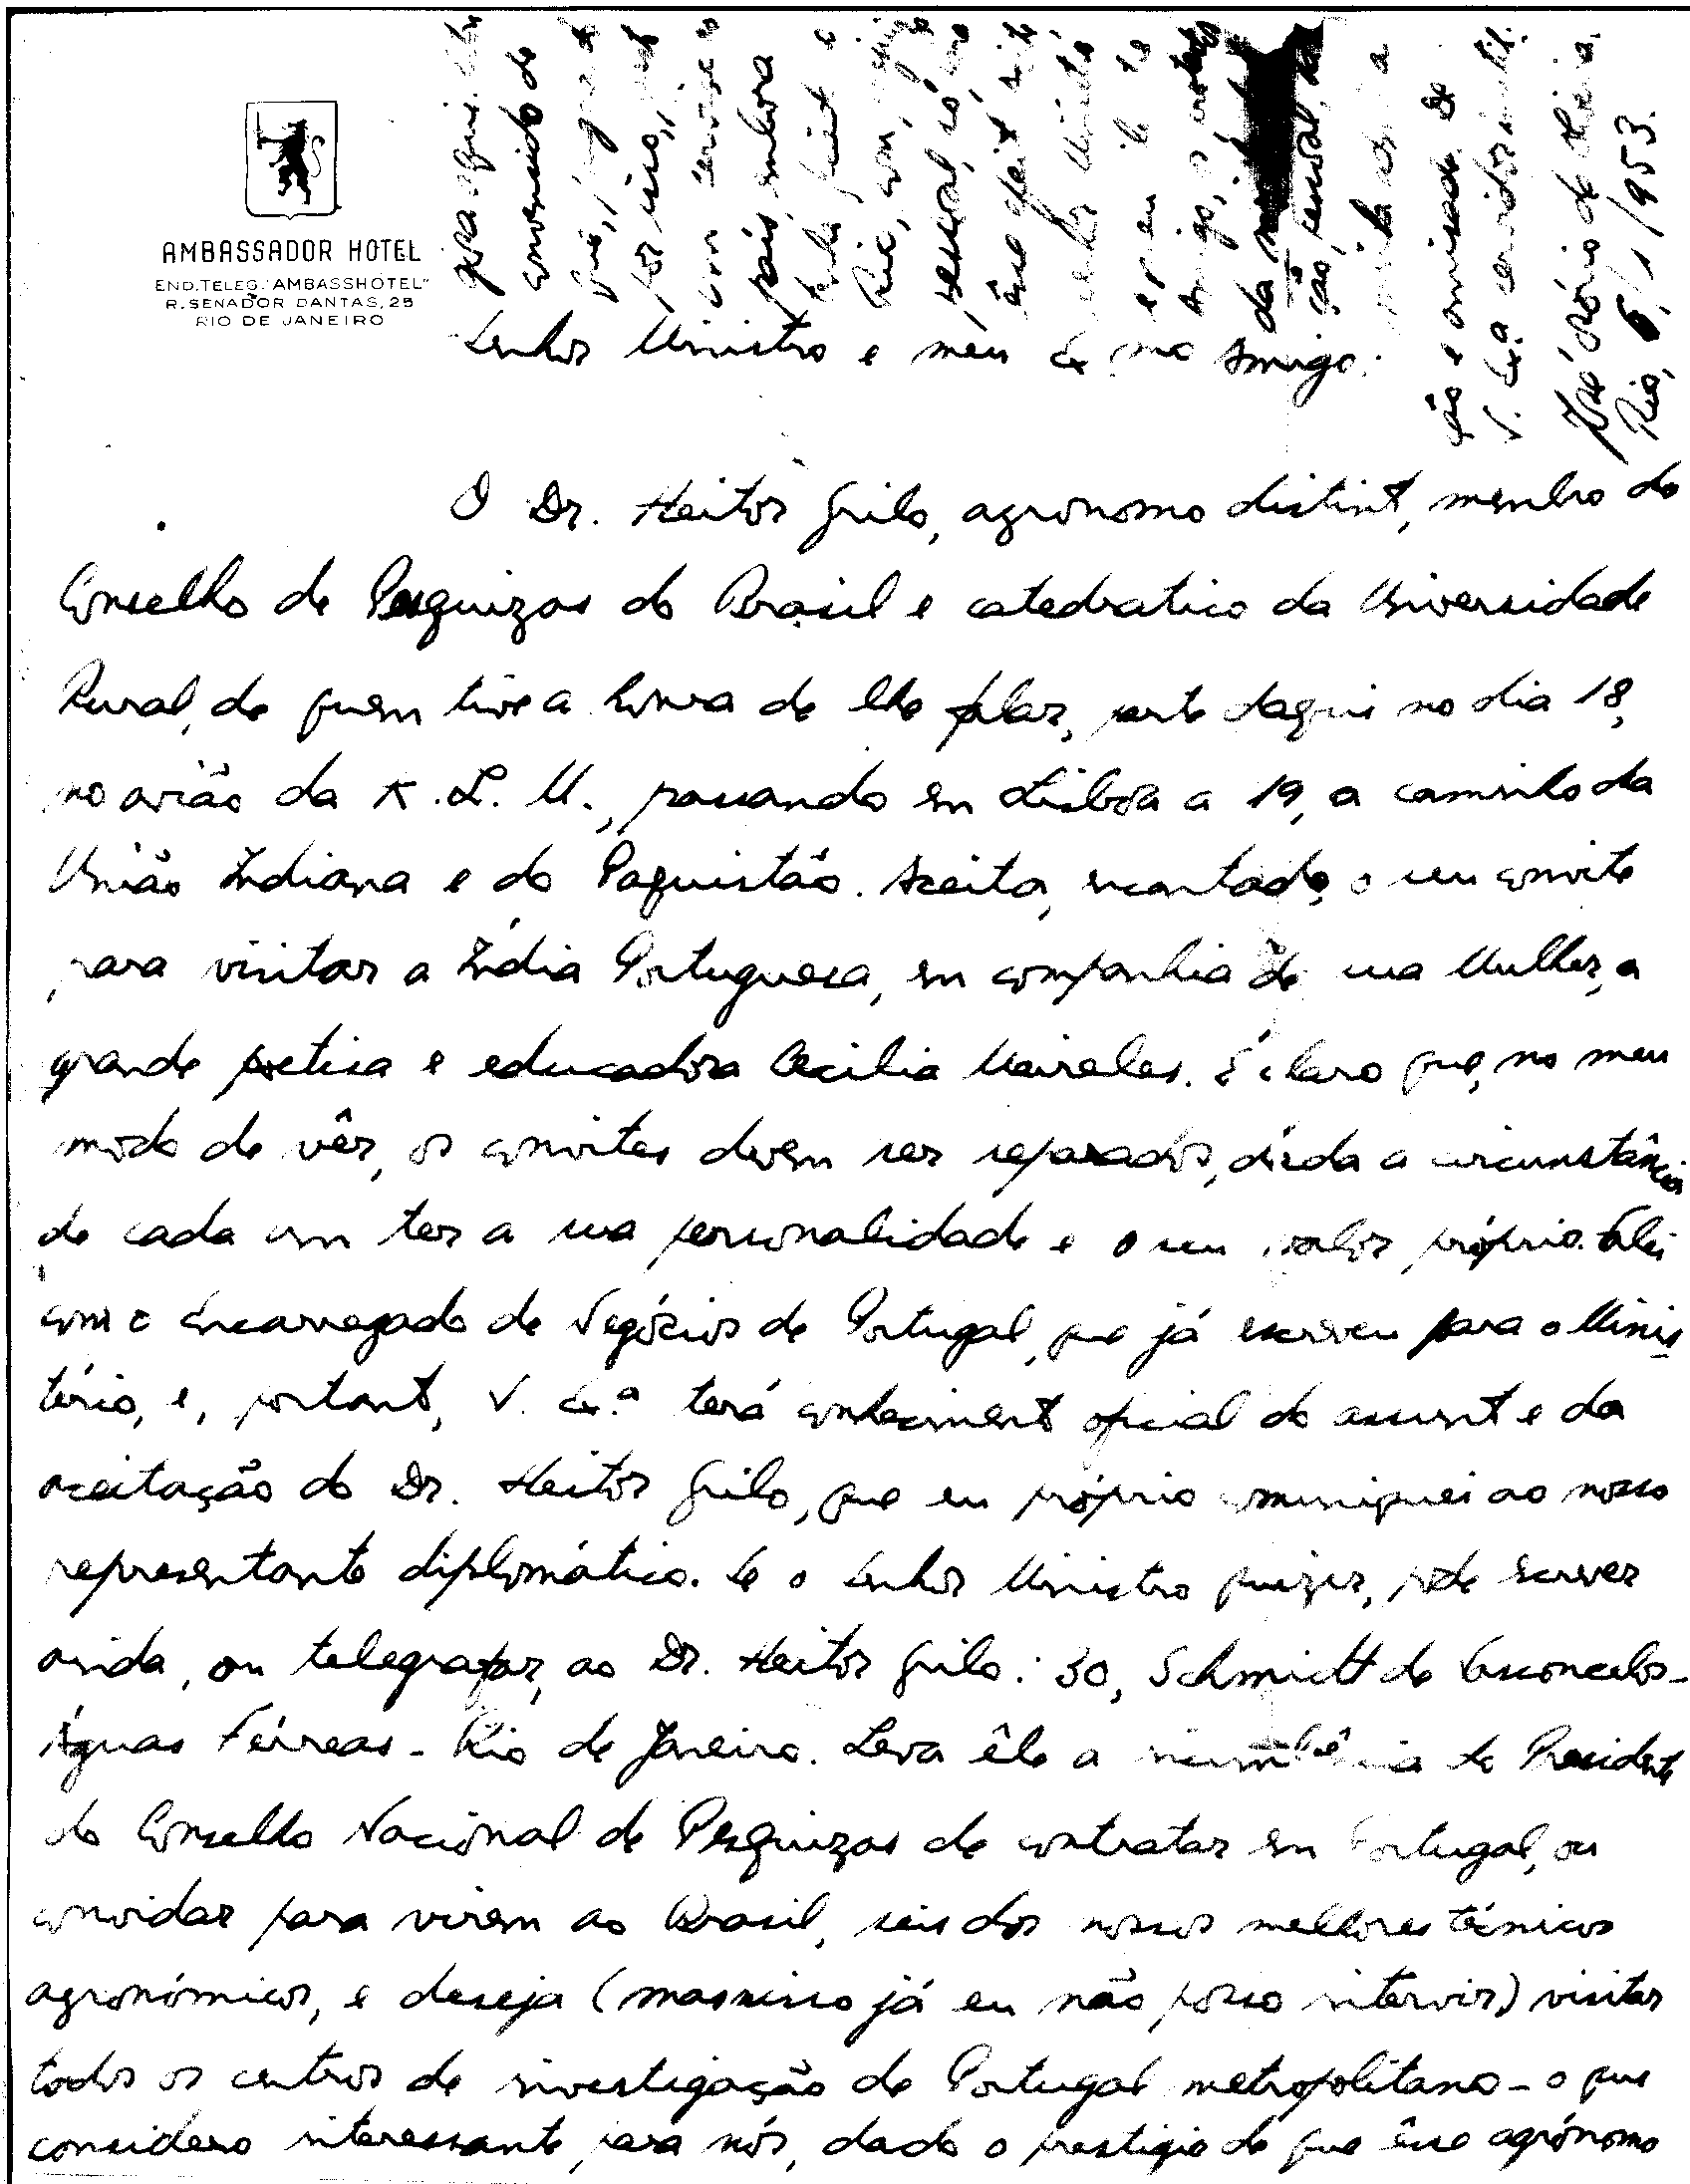 AMBASSADOR HOTEL
END. TELEG. "AMBASSHOTEL"
R. SENADOR DANTAS, 25
RIO DE JANEIRO
Senhor Ministro e meu Exmo Amigo:
O Dr. Heitor Grilo, agronomo distinto, membro do
Conselho de Pesquizas do Brasil e catedratico da Universidade
Rural, de quem tive a honra de lhe falar, parte daqui no dia 18,
no avião da K.L.M., passando em Lisboa a 19, a caminho da
União Indiana e do Paquistão. Aceita, encantado, o seu convite
para visitar a Índia Portuguesa, em companhia de sua Mulher, a
grande poetisa e educadora Cecilia Meireles. É claro que, no meu
modo de vêr, os convites devem ser separados, dada a circunstância
de cada um ter a sua personalidade e o seu valor próprio. Falei
com o Encarregado de Negócios de Portugal, que já escreveu para o Minis
tério, e, portanto, V. Ex.ª terá conhecimento oficial do assunto e da
aceitação do Dr. Heitor Grilo, que eu próprio comuniquei ao nosso
representante diplomático. Se o Senhor Ministro quizer, pode escrever
ainda, ou telegrafar, ao Dr. Heitor Grilo: 30, Schmidt de Vasconcelos -
Águas Férreas - Rio de Janeiro. Leva êle a incumbência do Presidente
do Conselho Nacional de Pesquizas de contratar em Portugal, ou
convidar para virem ao Brasil, seis dos nossos melhores técnicos
agronómicos, e deseja (mas nisso já eu não posso intervir) visitar
todos os centros de investigação de Portugal metropolitano - o que
considero interessante para nós, dado o prestigio de que êsse agrónomo
goza aqui.
convencido de
que,
por isso,
com
país, embora
Rio, com
pessoal, só
êsse
Senhor Ministro
eu
amigo, o
da
ção, pessoal, da
a
ção e amizade de
V. Ex.ª
José Osório de Oliveira.
Rio, 6/1/953.